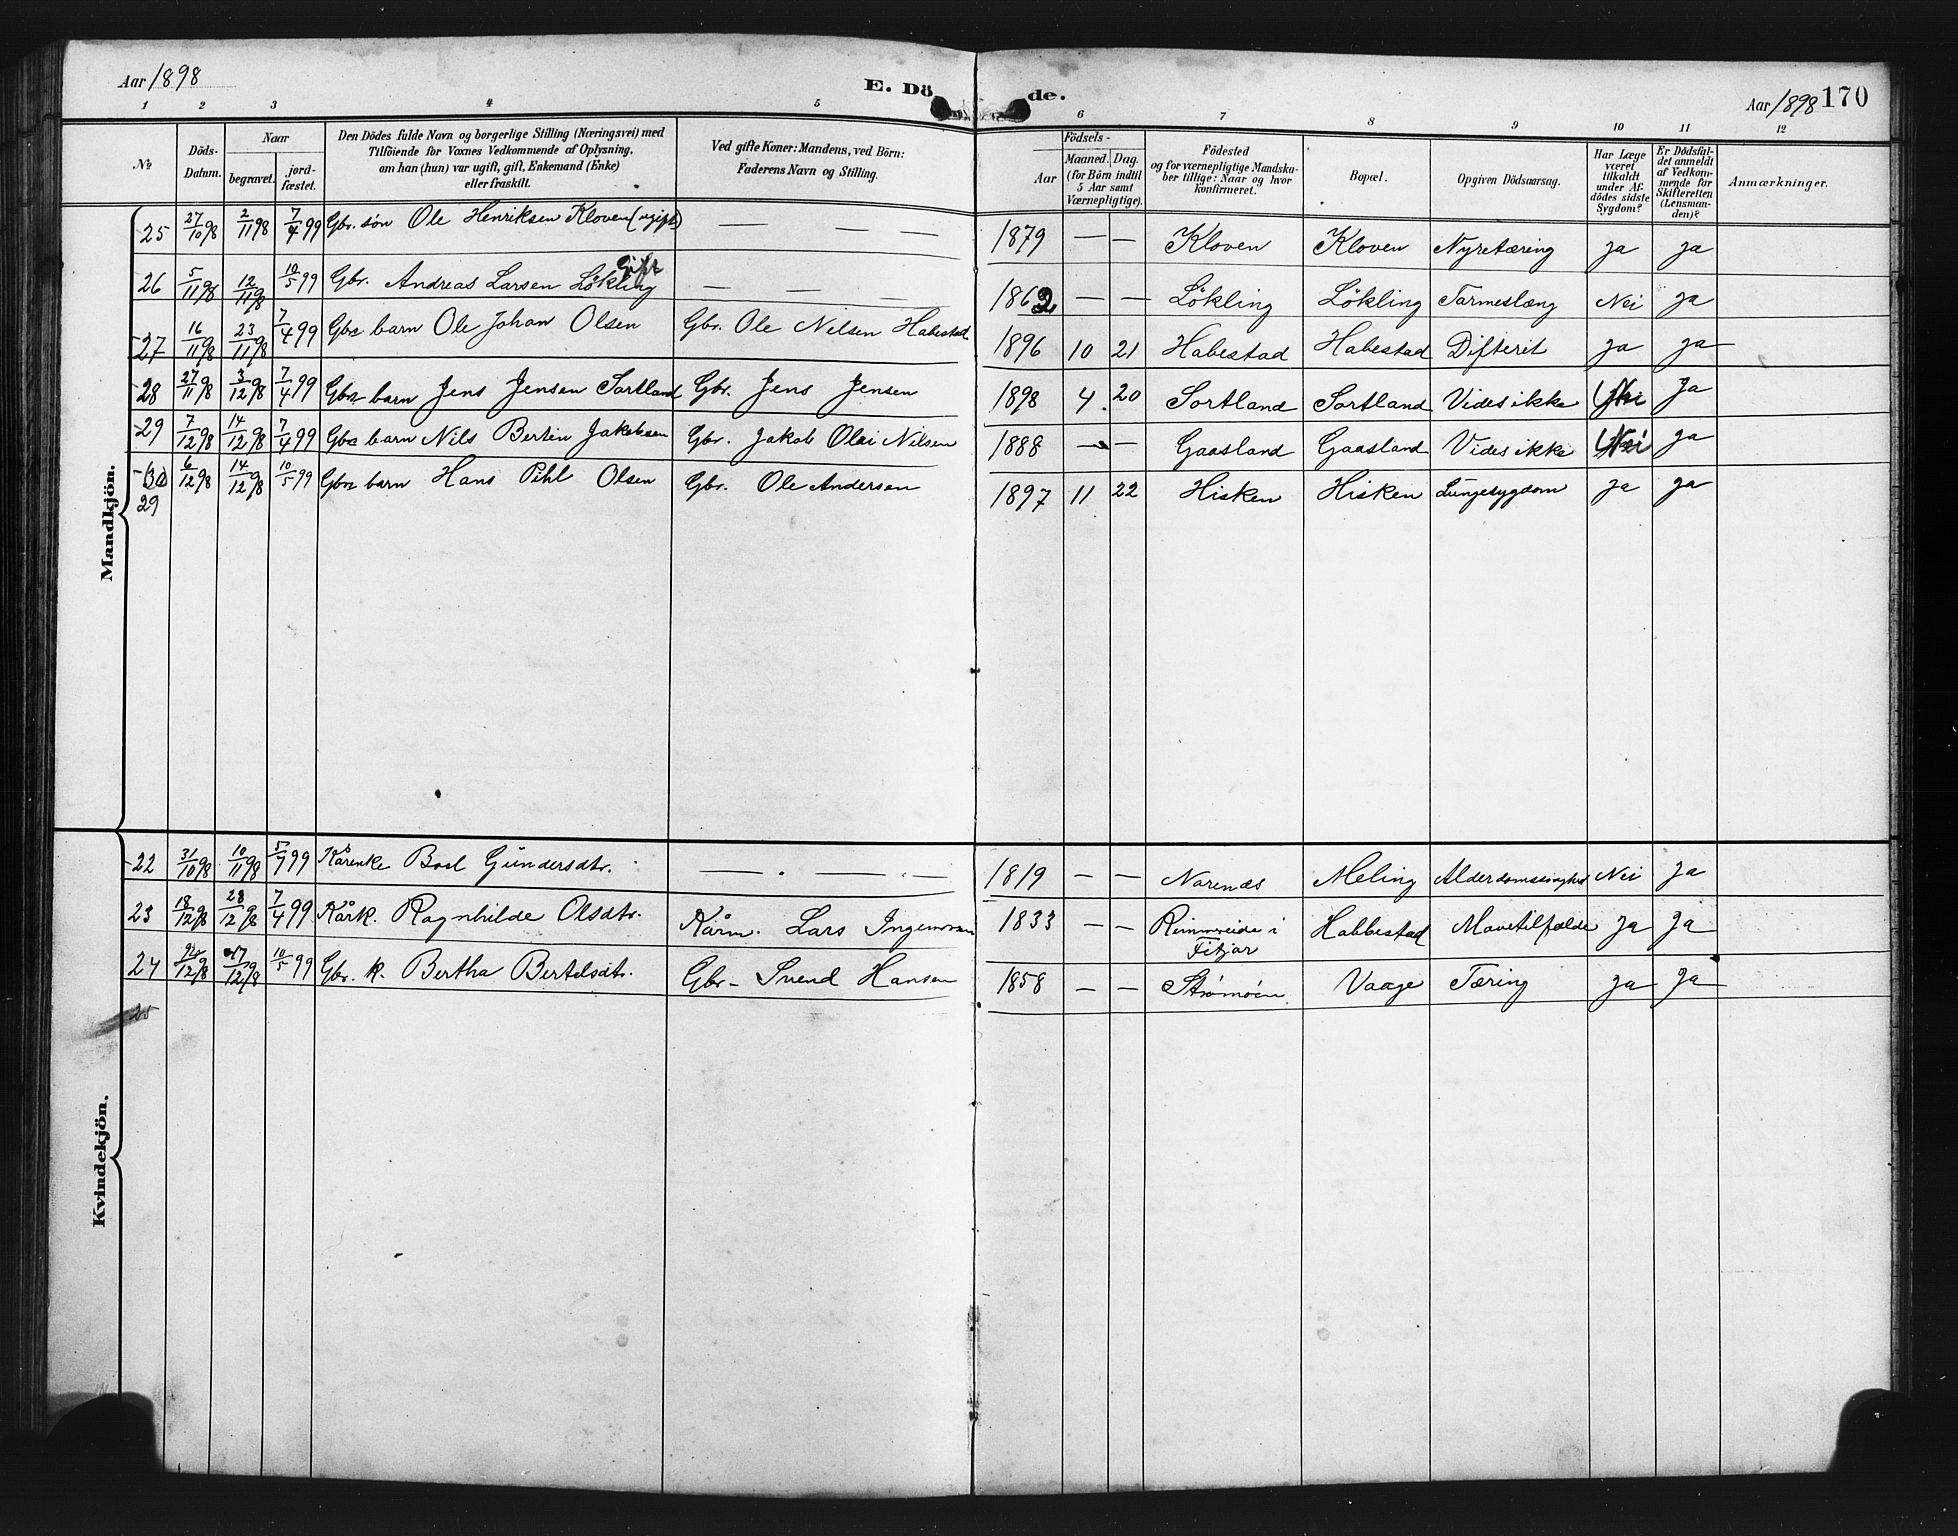 Aar 1898
E. Dö de.
Aar 1898 170
1 2 3 4 5 6 7 8 9 10 11 12
No
Döds-Datum.
Naar
begravet.
jord-fæstet.
Den Dödes fulde Navn og borgerlige Stilling (Næringsvei) med
Tilföiende for Voxnes Vedkommende af Oplysning,
om han (hun) var ugift, gift, Enkemand (Enke)
eller fraskilt.
Ved gifte Koner: Mandens, ved Börn:
Faderens Navn og Stilling.
Födsels-
Aar
Maaned. Dag.
(for Börn indtil
5 Aar samt
Værnepligtige).
Födested
og for værnepligtige Mandska-
ber tillige: Naar og hvor
konfirmeret.
Bopæl.
Opgiven Dödsaarsag.
Har Læge
været
tilkaldt
under Af-
dödes sidste
Sygdom?
Er Dödsfal-
det anmeldt
af Vedkom-
mende for
Skifteretten
(Lensman-
den)?
Anmærkninger.
Mandkjön.
25 27/10 98 2/11 98 7/4 99 Gbr. søn Ole Henriksen Kloven (ugift) — — — — 1879 — — Kloven Kloven Nyretæring ja ja
Gift
26 5/11 98 12/11 98 10/5 99 Gbr. Andreas Larsen Lökling — — — — 1862 — — Lökling Lökling Tarmeslæng Nei ja
27 16/11 98 23/11 98 7/4 99 Gbr barn Ole Johan Olsen Gbr. Ole Nilsen Habestad 1896 10 21 Habestad Habestad Difterit ja ja
28 27/11 98 3/12 98 7/4 99 Gbr barn Jens Jensen Sortland Gbr. Jens Jensen 1898 4 20 Sortland Sortland Vides ikke Nei Ja
29 7/12 98 14/12 98 7/4 99 Gbr barn Nils Bertin Jakobsen Gbr. Jakob Olai Nilsen 1888 — — Gaasland Gaasland Vides ikke Nei ja
30 6/12 98 14/12 98 10/5 99 Gbr barn Hans Pihl Olsen Gbr. Ole Andersen 1897 11 22 Hisken Hisken Lungesygdom ja ja
29
Kvindekjön.
22 31/10 98 10/11 98 5/7 99 Kårenke Boel Gündersdtr. — — — 1819 — — Narenæs Meling Alderdomssvaghed Nei ja
23 18/12 98 28/12 98 7/4 99 Kårk. Ragnhilde Olsdtr. Kårm. Lars Ingemorsen 1833 — — Rimmereide i Habbestad Mavetilfælde ja ja
Fitjar
24 /12 98 17/12 98 10/5 99 Gbr. k. Bertha Bertelsdtr. Gbr- Svend Hansen 1858 — — Strømöen Vaage Tæring ja ja
25